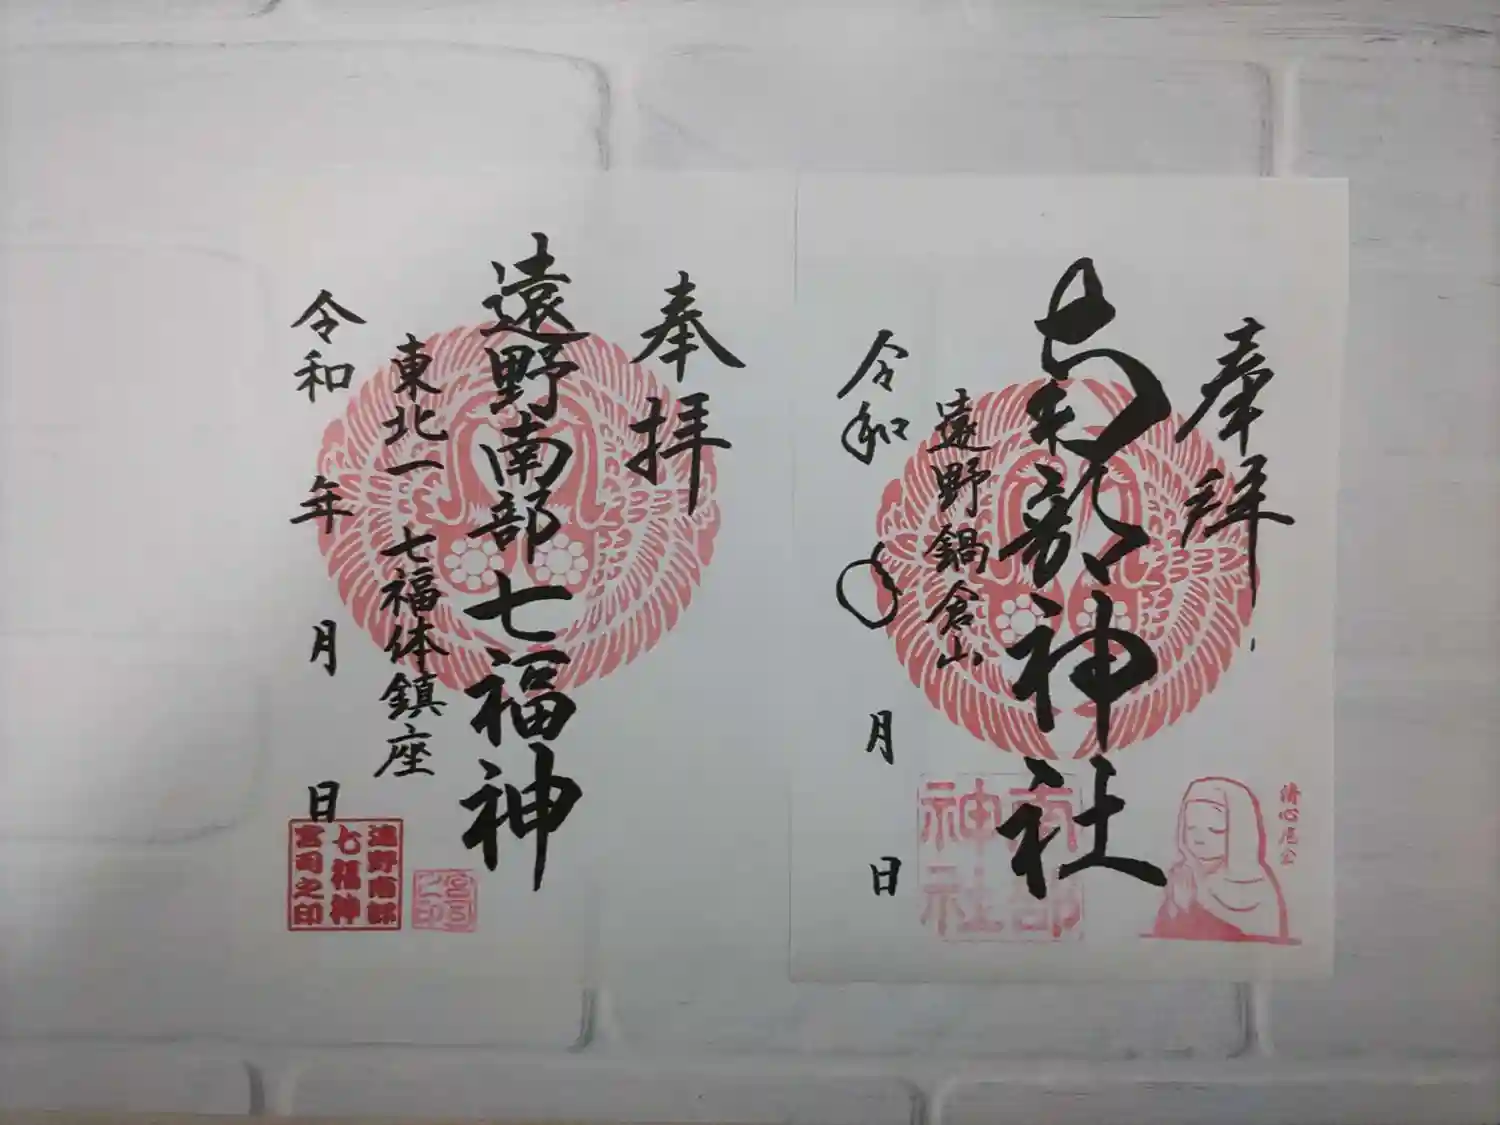 奉拝
南部神社
遠野鍋倉山
令和 月 日
南部
神社
清心尼公
奉拝
遠野南部七福神
東北一 七福体鎮座
令和 年 月 日
遠野南部
七福神
宮司之印
宮司
之印